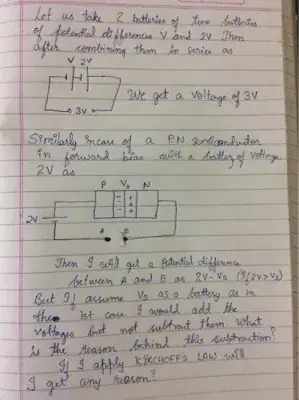 Let us take 2 batteries of two batteries
of potential differences V and 2V Then
after combining them in series as
V 2V
3V
We get a voltage of 3V
Similarly incase of a PN semiconductor
in forward bias with a battery of voltage
2V as
P Vs N
2V
A B
Then I will get a potential difference
between A and B as 2V - Vs (If 2V > Vs)
But If assume Vs as a battery as in
the 1st case I would add the
voltages but not subtract them what
is the reason behind this subtraction?
If I apply KIRCHOFF'S LAW will
I get any reason?